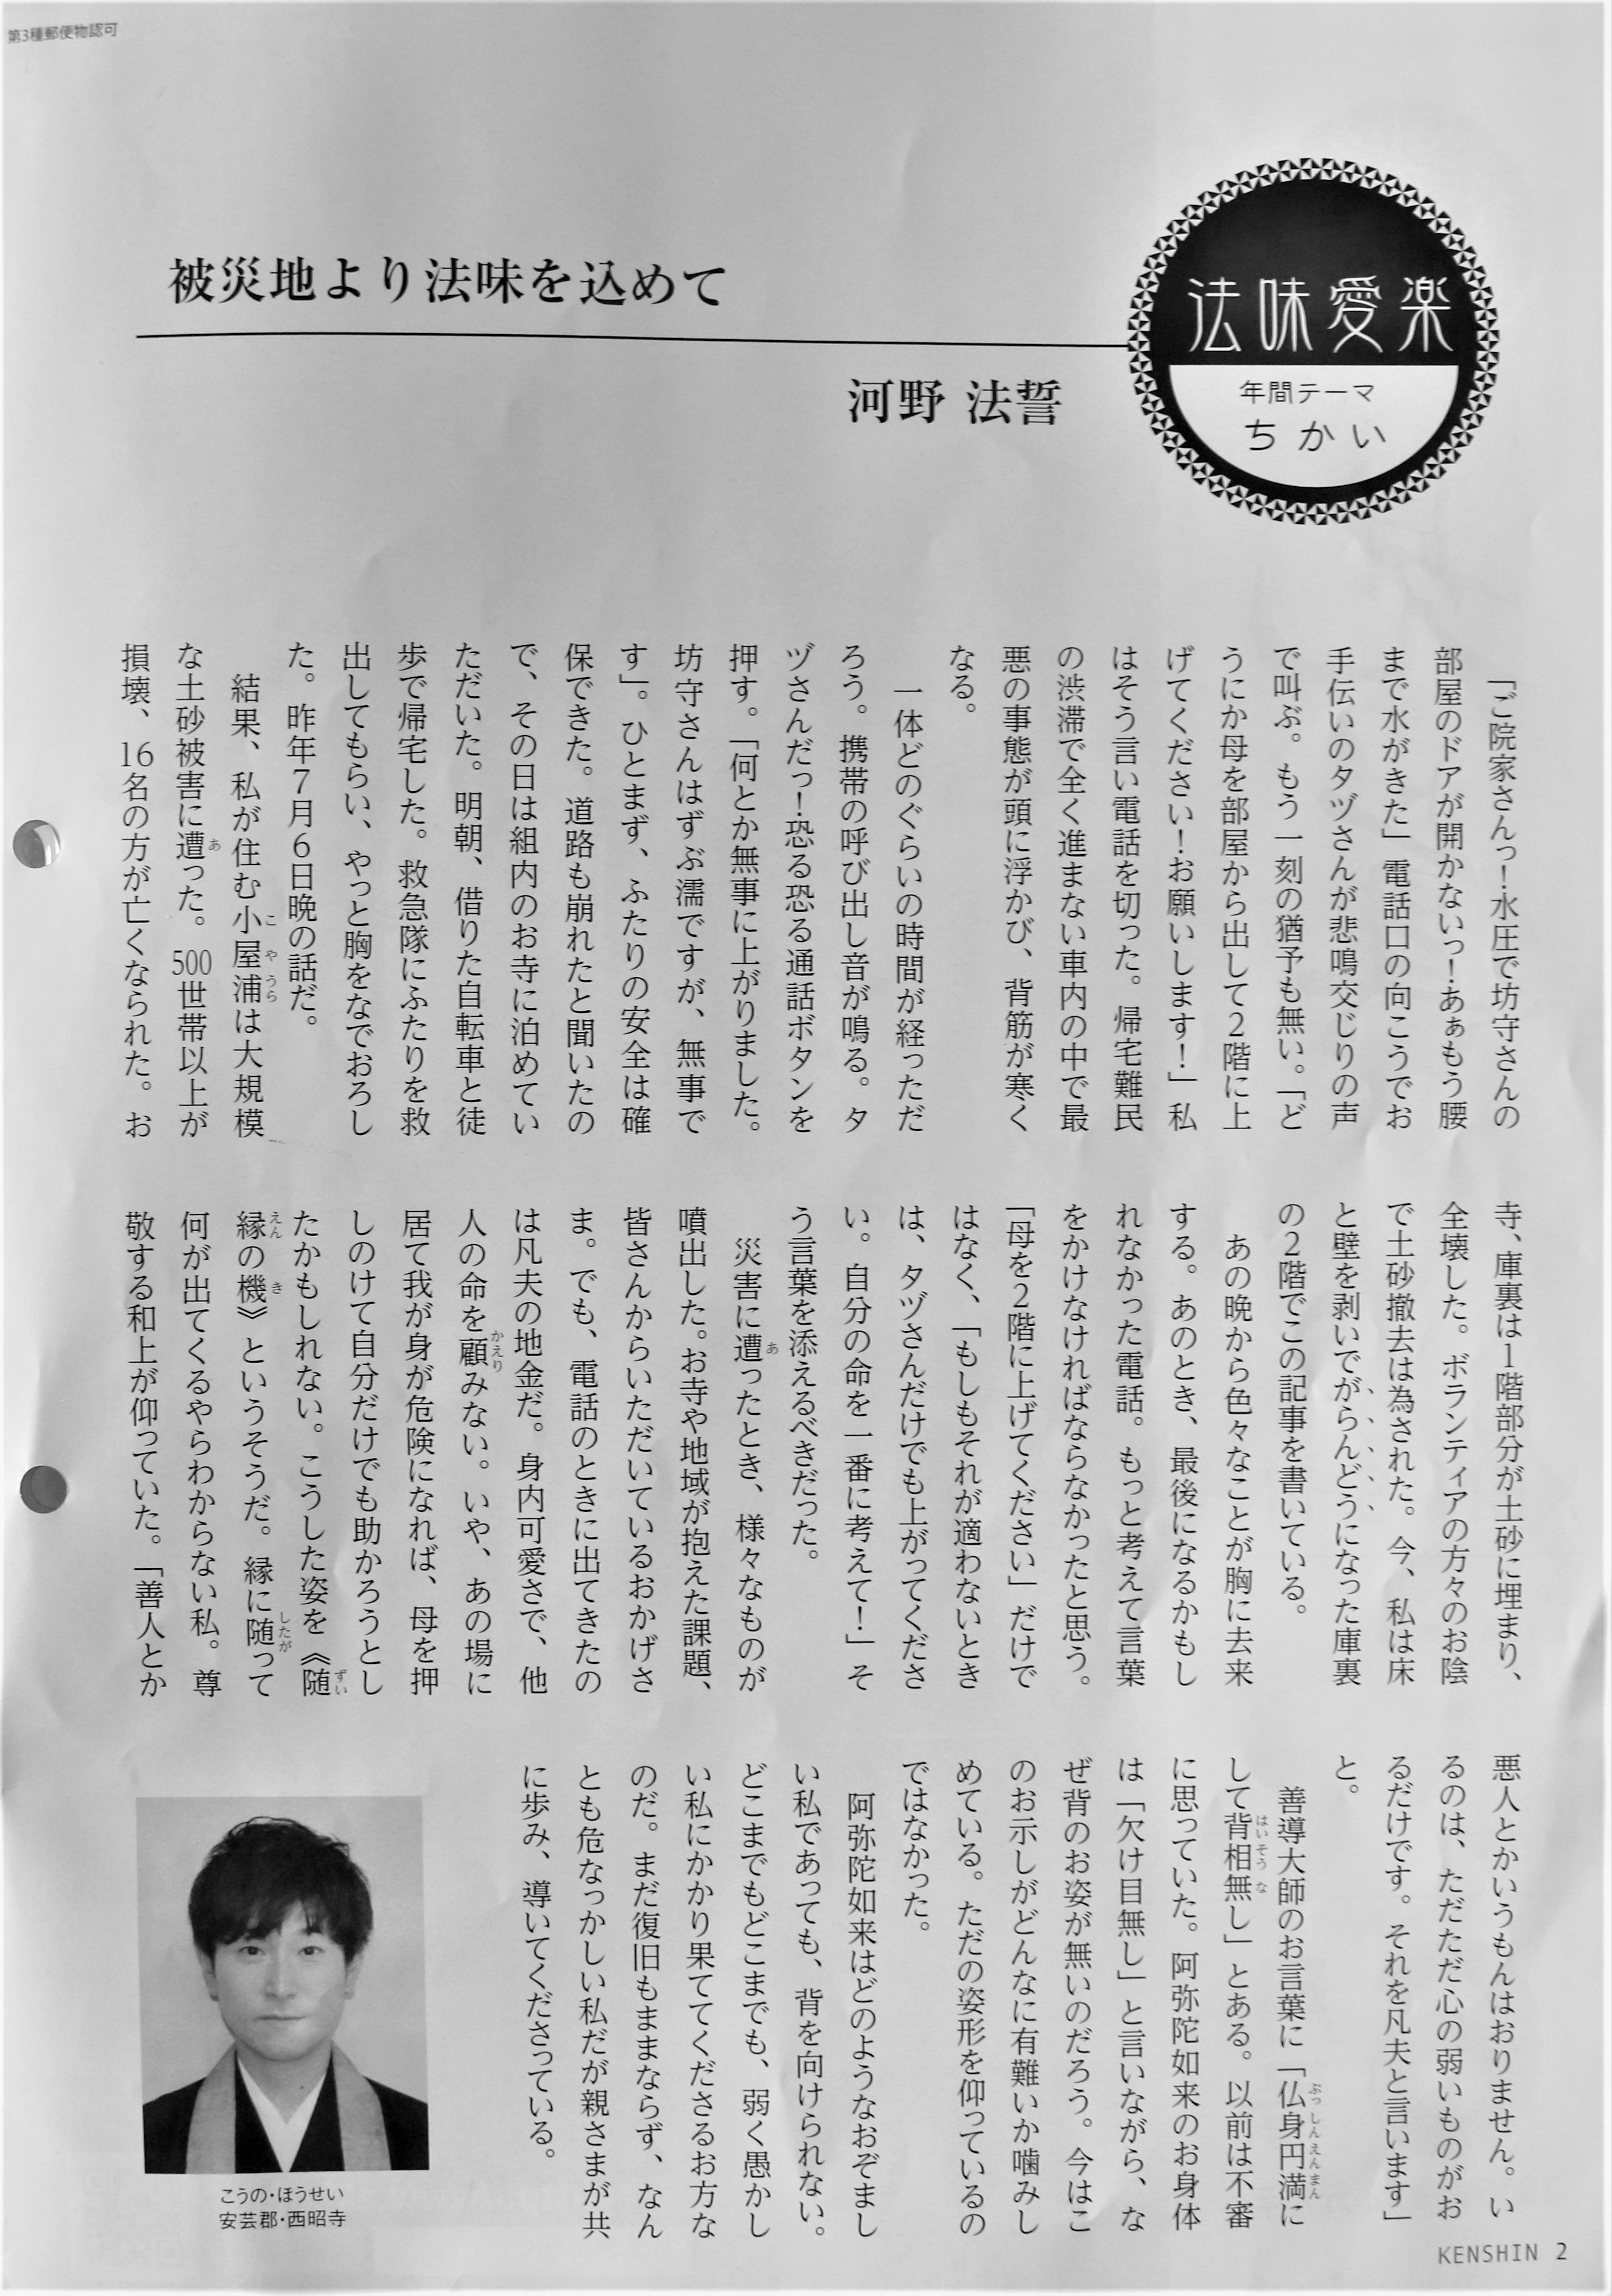 第3種郵便物認可
法味愛楽
年間テーマ
ちかい
被災地より法味を込めて
河野 法誓
「ご院家さんっ！水圧で坊守さんの
部屋のドアが開かないっ！あぁもう腰
まで水がきた」電話口の向こうでお
手伝いのタヅさんが悲鳴交じりの声
で叫ぶ。もう一刻の猶予も無い。「ど
うにか母を部屋から出して2階に上
げてください！お願いします！」私
はそう言い電話を切った。帰宅難民
の渋滞で全く進まない車内の中で最
悪の事態が頭に浮かび、背筋が寒く
なる。
一体どのぐらいの時間が経っただ
ろう。携帯の呼び出し音が鳴る。タ
ヅさんだっ！恐る恐る通話ボタンを
押す。「何とか無事に上がりました。
坊守さんはずぶ濡ですが、無事で
す」。ひとまず、ふたりの安全は確
保できた。道路も崩れたと聞いたの
で、その日は組内のお寺に泊めてい
ただいた。明朝、借りた自転車と徒
歩で帰宅した。救急隊にふたりを救
出してもらい、やっと胸をなでおろし
た。昨年7月6日晩の話だ。
結果、私が住む小屋浦は大規模
な土砂被害に遭った。500世帯以上が
損壊、16名の方が亡くなられた。お
寺、庫裏は1階部分が土砂に埋まり、
全壊した。ボランティアの方々のお陰
で土砂撤去は為された。今、私は床
と壁を剥いでがらんどうになった庫裏
の2階でこの記事を書いている。
あの晩から色々なことが胸に去来
する。あのとき、最後になるかもし
れなかった電話。もっと考えて言葉
をかけなければならなかったと思う。
「母を2階に上げてください」だけで
はなく、「もしもそれが適わないとき
は、タヅさんだけでも上がってくださ
い。自分の命を一番に考えて！」そ
う言葉を添えるべきだった。
災害に遭ったとき、様々なものが
噴出した。お寺や地域が抱えた課題、
皆さんからいただいているおかげさ
ま。でも、電話のときに出てきたの
は凡夫の地金だ。身内可愛さで、他
人の命を顧みない。いや、あの場に
居て我が身が危険になれば、母を押
しのけて自分だけでも助かろうとし
たかもしれない。こうした姿を《随
縁の機》というそうだ。縁に随って
何が出てくるやらわからない私。尊
敬する和上が仰っていた。「善人とか
悪人とかいうもんはおりません。い
るのは、ただただ心の弱いものがお
るだけです。それを凡夫と言います」
と。
善導大師のお言葉に「仏身円満に
して背相無し」とある。以前は不審
に思っていた。阿弥陀如来のお身体
は「欠け目無し」と言いながら、な
ぜ背のお姿が無いのだろう。今はこ
のお示しがどんなに有難いか噛みし
めている。ただの姿形を仰っているの
ではなかった。
阿弥陀如来はどのようなおぞまし
い私であっても、背を向けられない。
どこまでもどこまでも、弱く愚かし
い私にかかり果ててくださるお方な
のだ。まだ復旧もままならず、なん
とも危なっかしい私だが親さまが共
に歩み、導いてくださっている。
こうの・ほうせい
安芸郡・西昭寺
KENSHIN 2